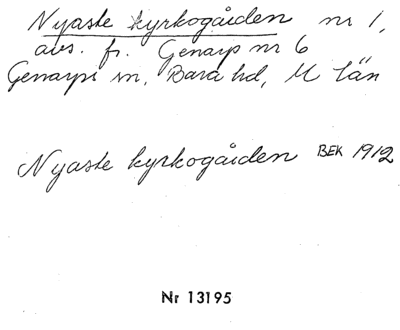 Nyaste kyrkogården nr 1,
avs. fr. Genarp nr 6
Genarps sn, Bara hd, M län
Nyaste kyrkogården BEK 1912
Nr 13195